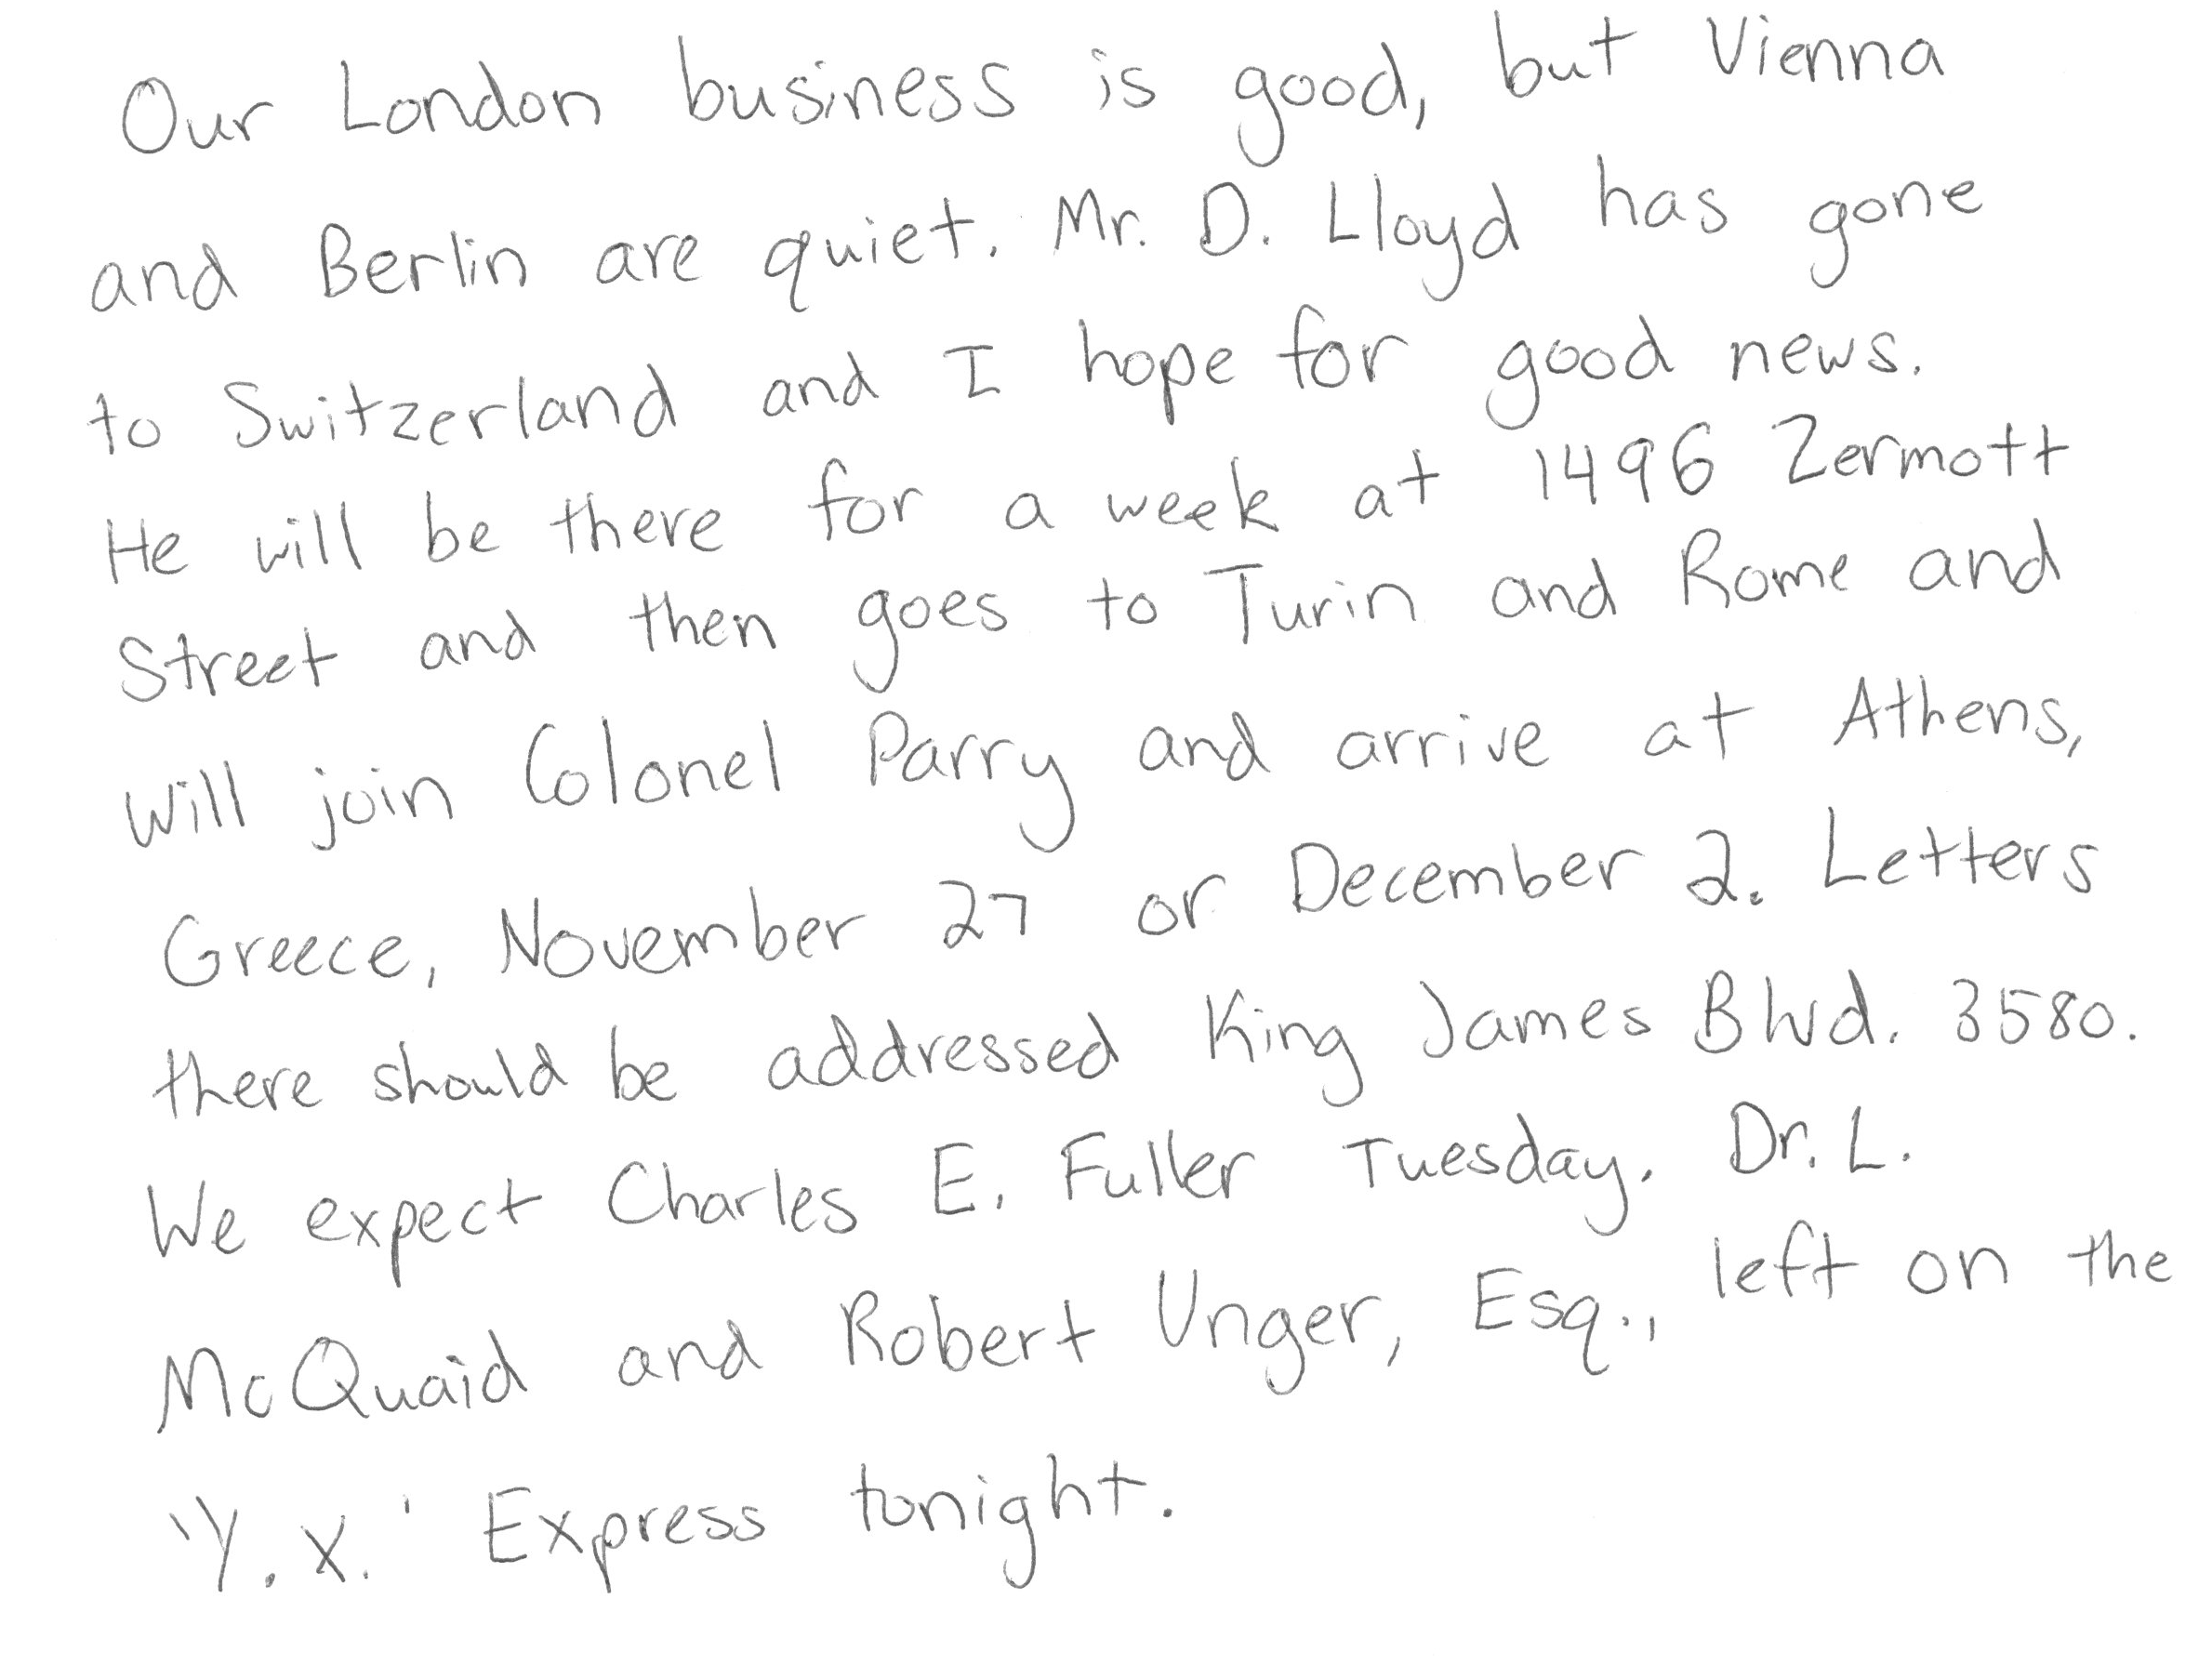 Our London business is good, but Vienna
and Berlin are quiet. Mr. D. Lloyd has gone
to Switzerland and I hope for good news.
He will be there for a week at 1496 Zermott
Street and then goes to Turin and Rome and
will join Colonel Parry and arrive at Athens,
Greece, November 27 or December 2. Letters
there should be addressed King James Blvd. 3580.
We expect Charles E. Fuller Tuesday. Dr. L.
McQuaid and Robert Unger, Esq., left on the
'Y. X.' Express tonight.